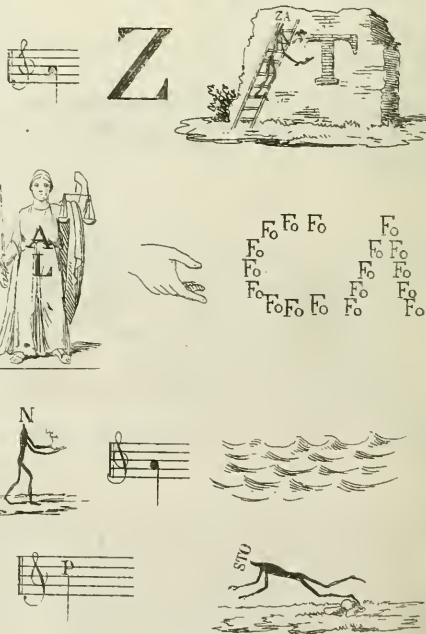 Z ZA T
A
L
Fo Fo Fo Fo
Fo Fo Fo
Fo Fo Fo
Fo Fo Fo
Fo Fo Fo Fo Fo Fo
N
P STO